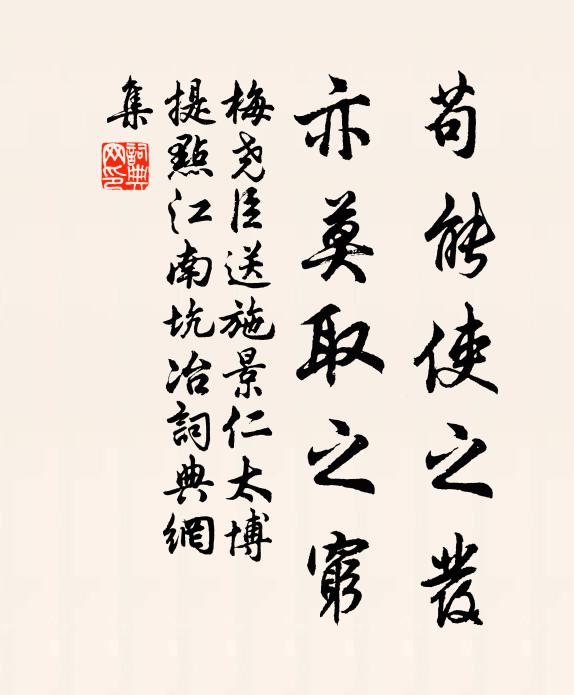 苟能使之叢
亦莫取之窮
梅尧臣送施景仁太博
提點江南坑冶詞典網
集
詞典
网印